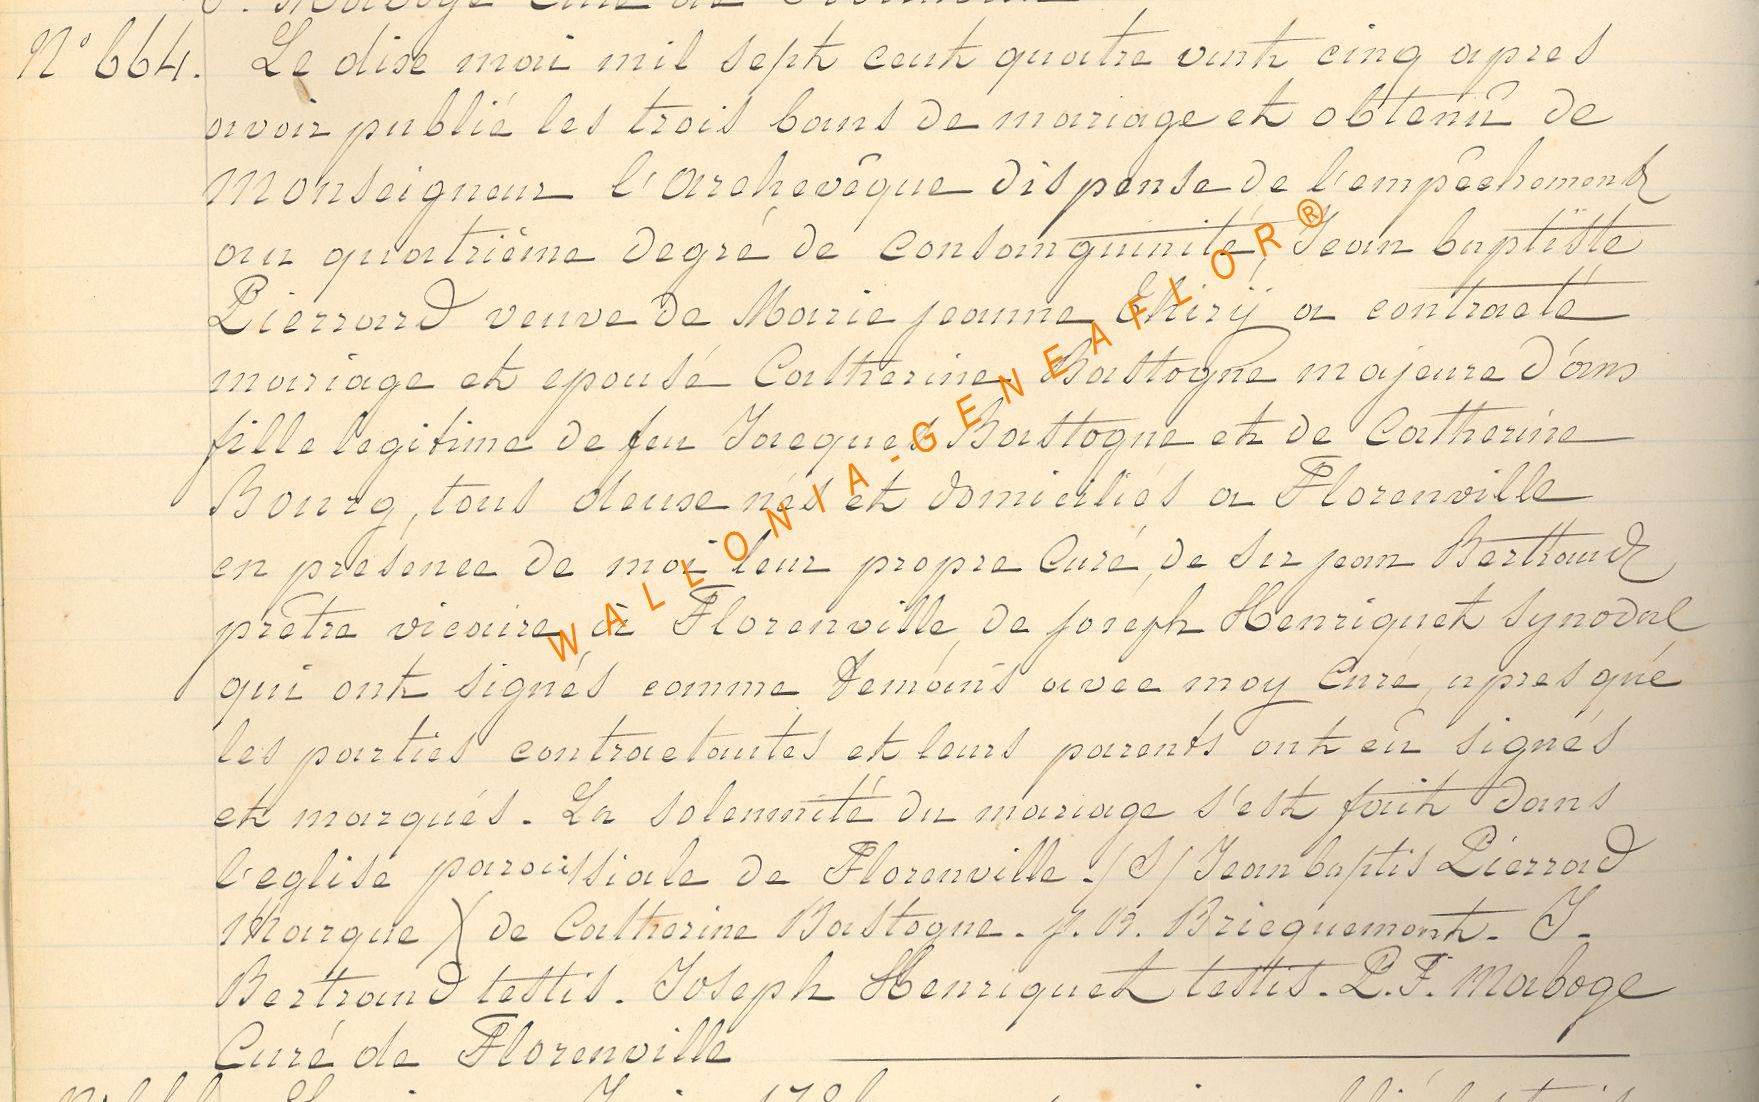 N° 664. Le dixe mai mil sept cent quatre vint cinq apres
avoir publié les trois bans de mariage et obtenû de
Monseigneur l'archevêque dispense de l'empêchement
au quatrième degré de consanguinité, Jean baptiste
Pierrard veuve de Marie jeanne Thirÿ a contracté
mariage et epousé Catherine Bastogne majeure d'ans
fille legitime de feu Jacques Bastogne et de Catherine
Bourg, tous deuxe nés et domiciliés a Florenville
en présence de moi leur propre Curé, de Sr jean Bertrand
prêtre vicaire à Florenville, de joseph Henriquet synodal
qui ont signés comme temoins avec moy Curé, apres que
les parties contractantes et leurs parents ont eû signés
et marqués. La solemnité du mariage s'est fait dans
l'eglise paroissiale de Florenville. (S) Jean baptis Pierrard
Marque X de Catherine Bastogne. j. B. Bricquemont. J.
Bertrand testis. Joseph Henriquet testis. P.F. Maboge
Curé de Florenville
WALLONIA-GENEAFLOR®